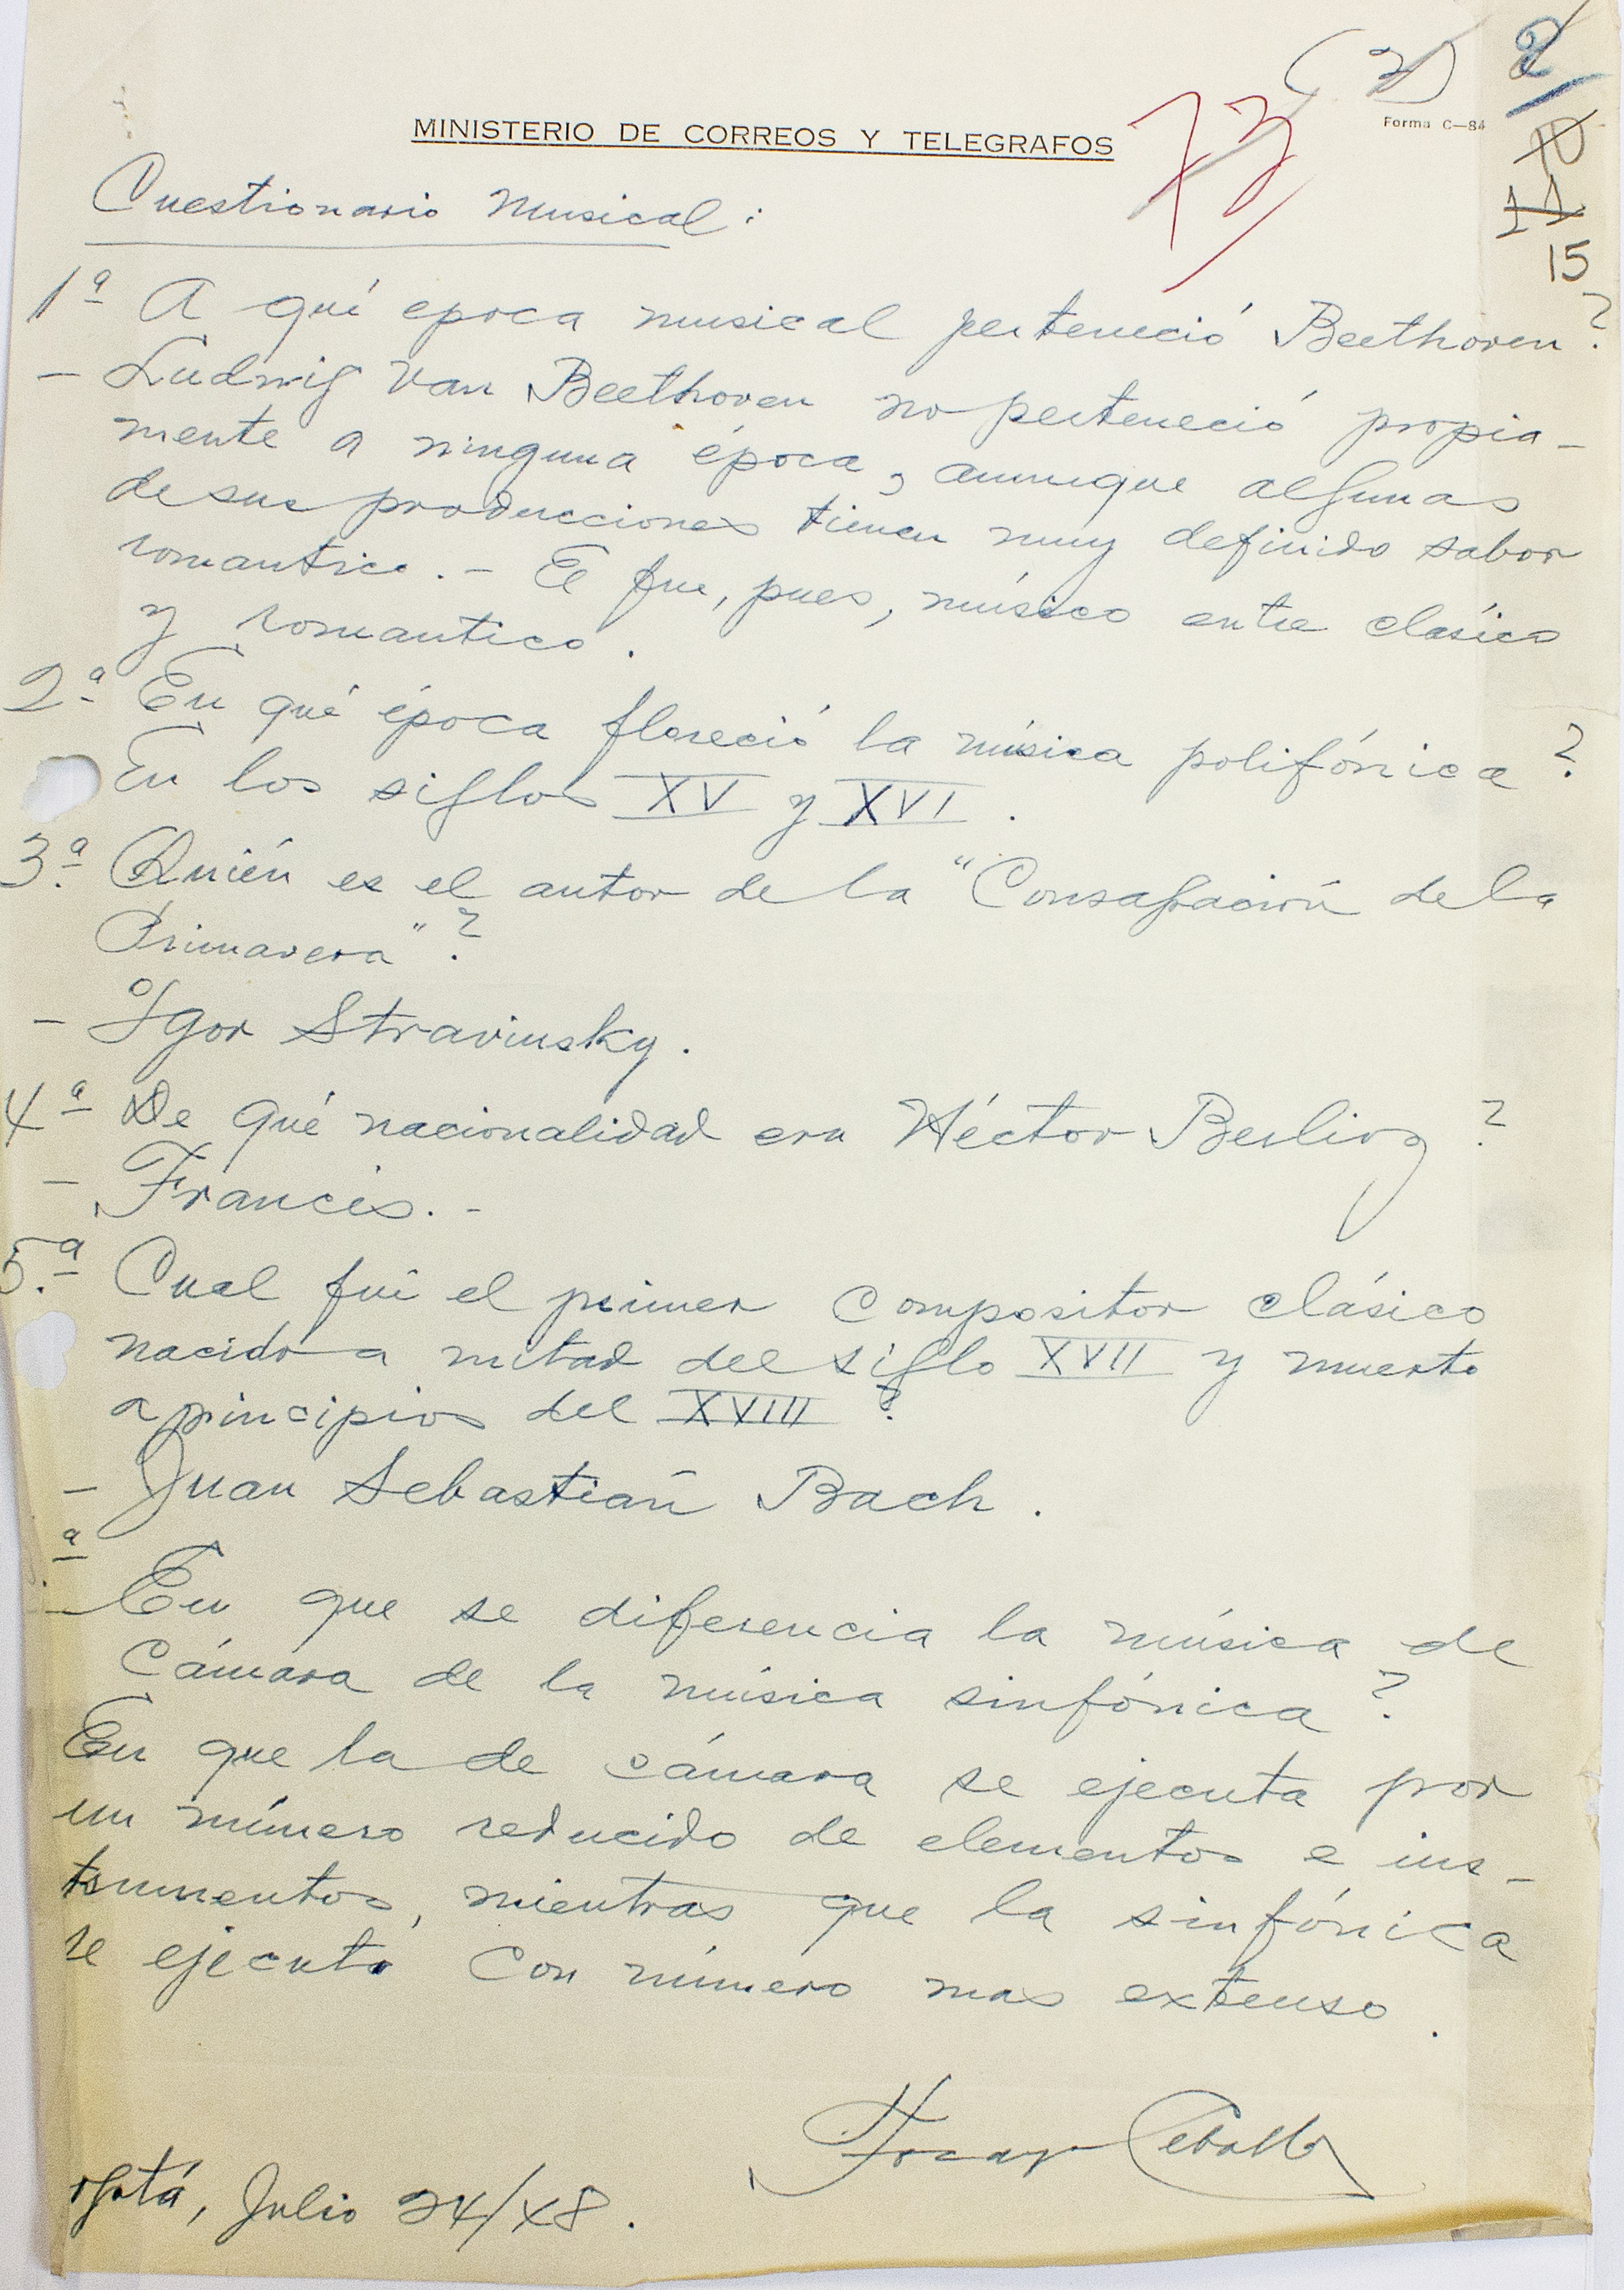 (2) 2
Forma C—84
MINISTERIO DE CORREOS Y TELEGRAFOS
73
10
11
15
Cuestionario Musical:
1ª A qué epoca musical perteneció Beethoven?
– Ludwig Van Beethoven no perteneció propia-
mente a ninguna época, aunque algunas
de sus producciones tienen muy definido sabor
romantico. – El fue, pues, músico entre clásico
y romantico.
2.ª En qué época floreció la música polifónica?
En los siglos XV y XVI.
3.ª Quién es el autor de la "Consagración de la
Primavera"?
– Igor Stravinsky.
4ª De qué nacionalidad era Héctor Berlioz?
– Francés. –
5.ª Cual fué el primer compositor clásico
nacido a mitad del siglo XVII y muerto
a principios del XVIII?
– Juan Sebastián Bach.
ª
– En que se diferencia la música de
Cámara de la música sinfónica?
En que la de cámara se ejecuta por
un número reducido de elementos e ins-
trumentos, mientras que la sinfónica
se ejecuta con número mas extenso.
ogotá, Julio 24/48.